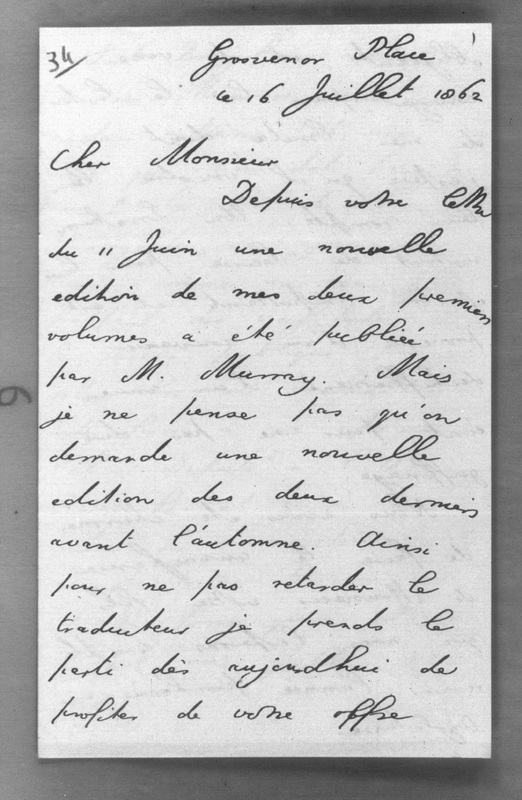 34
Grosvenor Place
ce 16 Juillet 1862
Cher Monsieur
Depuis votre lettre
du 11 Juin une nouvelle
edition de mes deux premiers
volumes a été publiée
par M. Murray. Mais
je ne pense pas qu'on
demande une nouvelle
edition des deux derniers
avant l'automne. Ainsi
pour ne pas retarder le
traducteur je prends le
parti dès aujourdhui de
profiter de votre offre